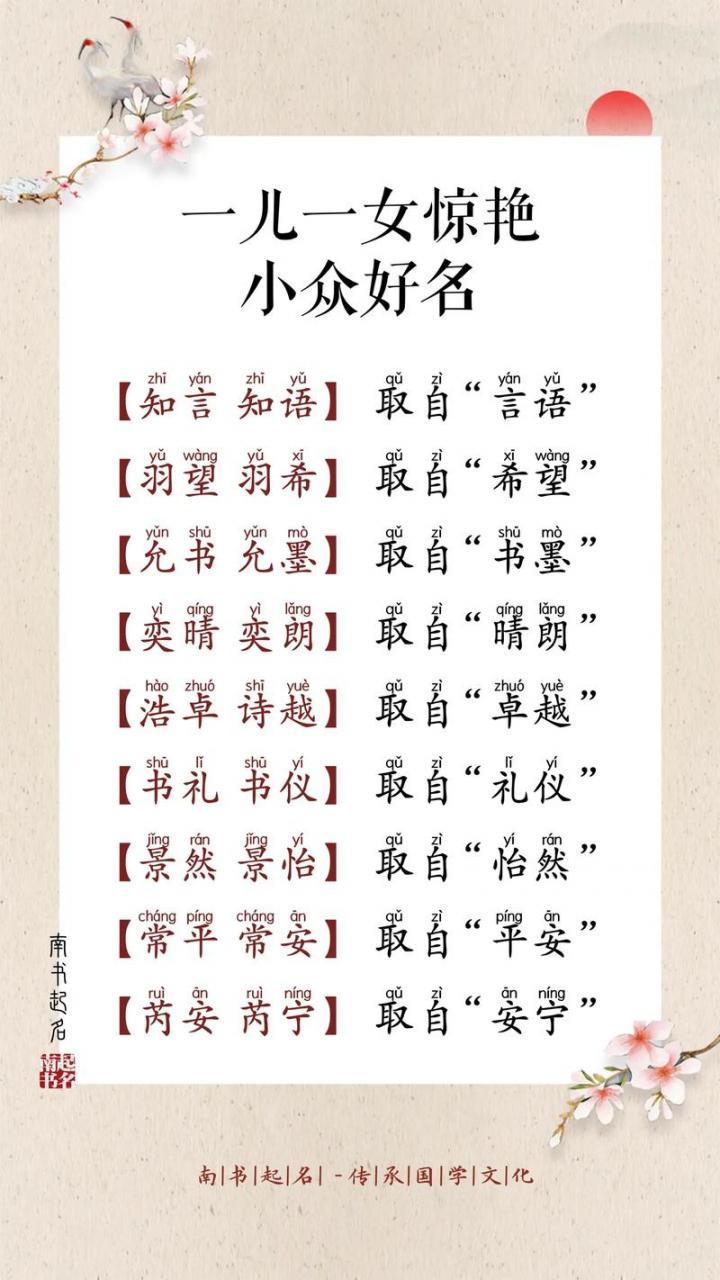 一儿一女惊艳
小众好名
zhī yán zhī yǔ qǔ zì yán yǔ
【知言 知语】 取自“言语”
yǔ wàng yǔ xī qǔ zì xī wàng
【羽望 羽希】 取自“希望”
yǔn shū yǔn mò qǔ zì shū mò
【允书 允墨】 取自“书墨”
yì qíng yì lǎng qǔ zì qíng lǎng
【奕晴 奕朗】 取自“晴朗”
hào zhuó shī yuè qǔ zì zhuó yuè
【浩卓 诗越】 取自“卓越”
shū lǐ shū yí qǔ zì lǐ yí
【书礼 书仪】 取自“礼仪”
jǐng rán jǐng yí qǔ zì yí rán
【景然 景怡】 取自“怡然”
cháng píng cháng ān qǔ zì píng ān
【常平 常安】 取自“平安”
ruì ān ruì níng qǔ zì ān níng
【芮安 芮宁】 取自“安宁”
南书起名
南书起名
南|书|起|名|-传|承|国|学|文|化